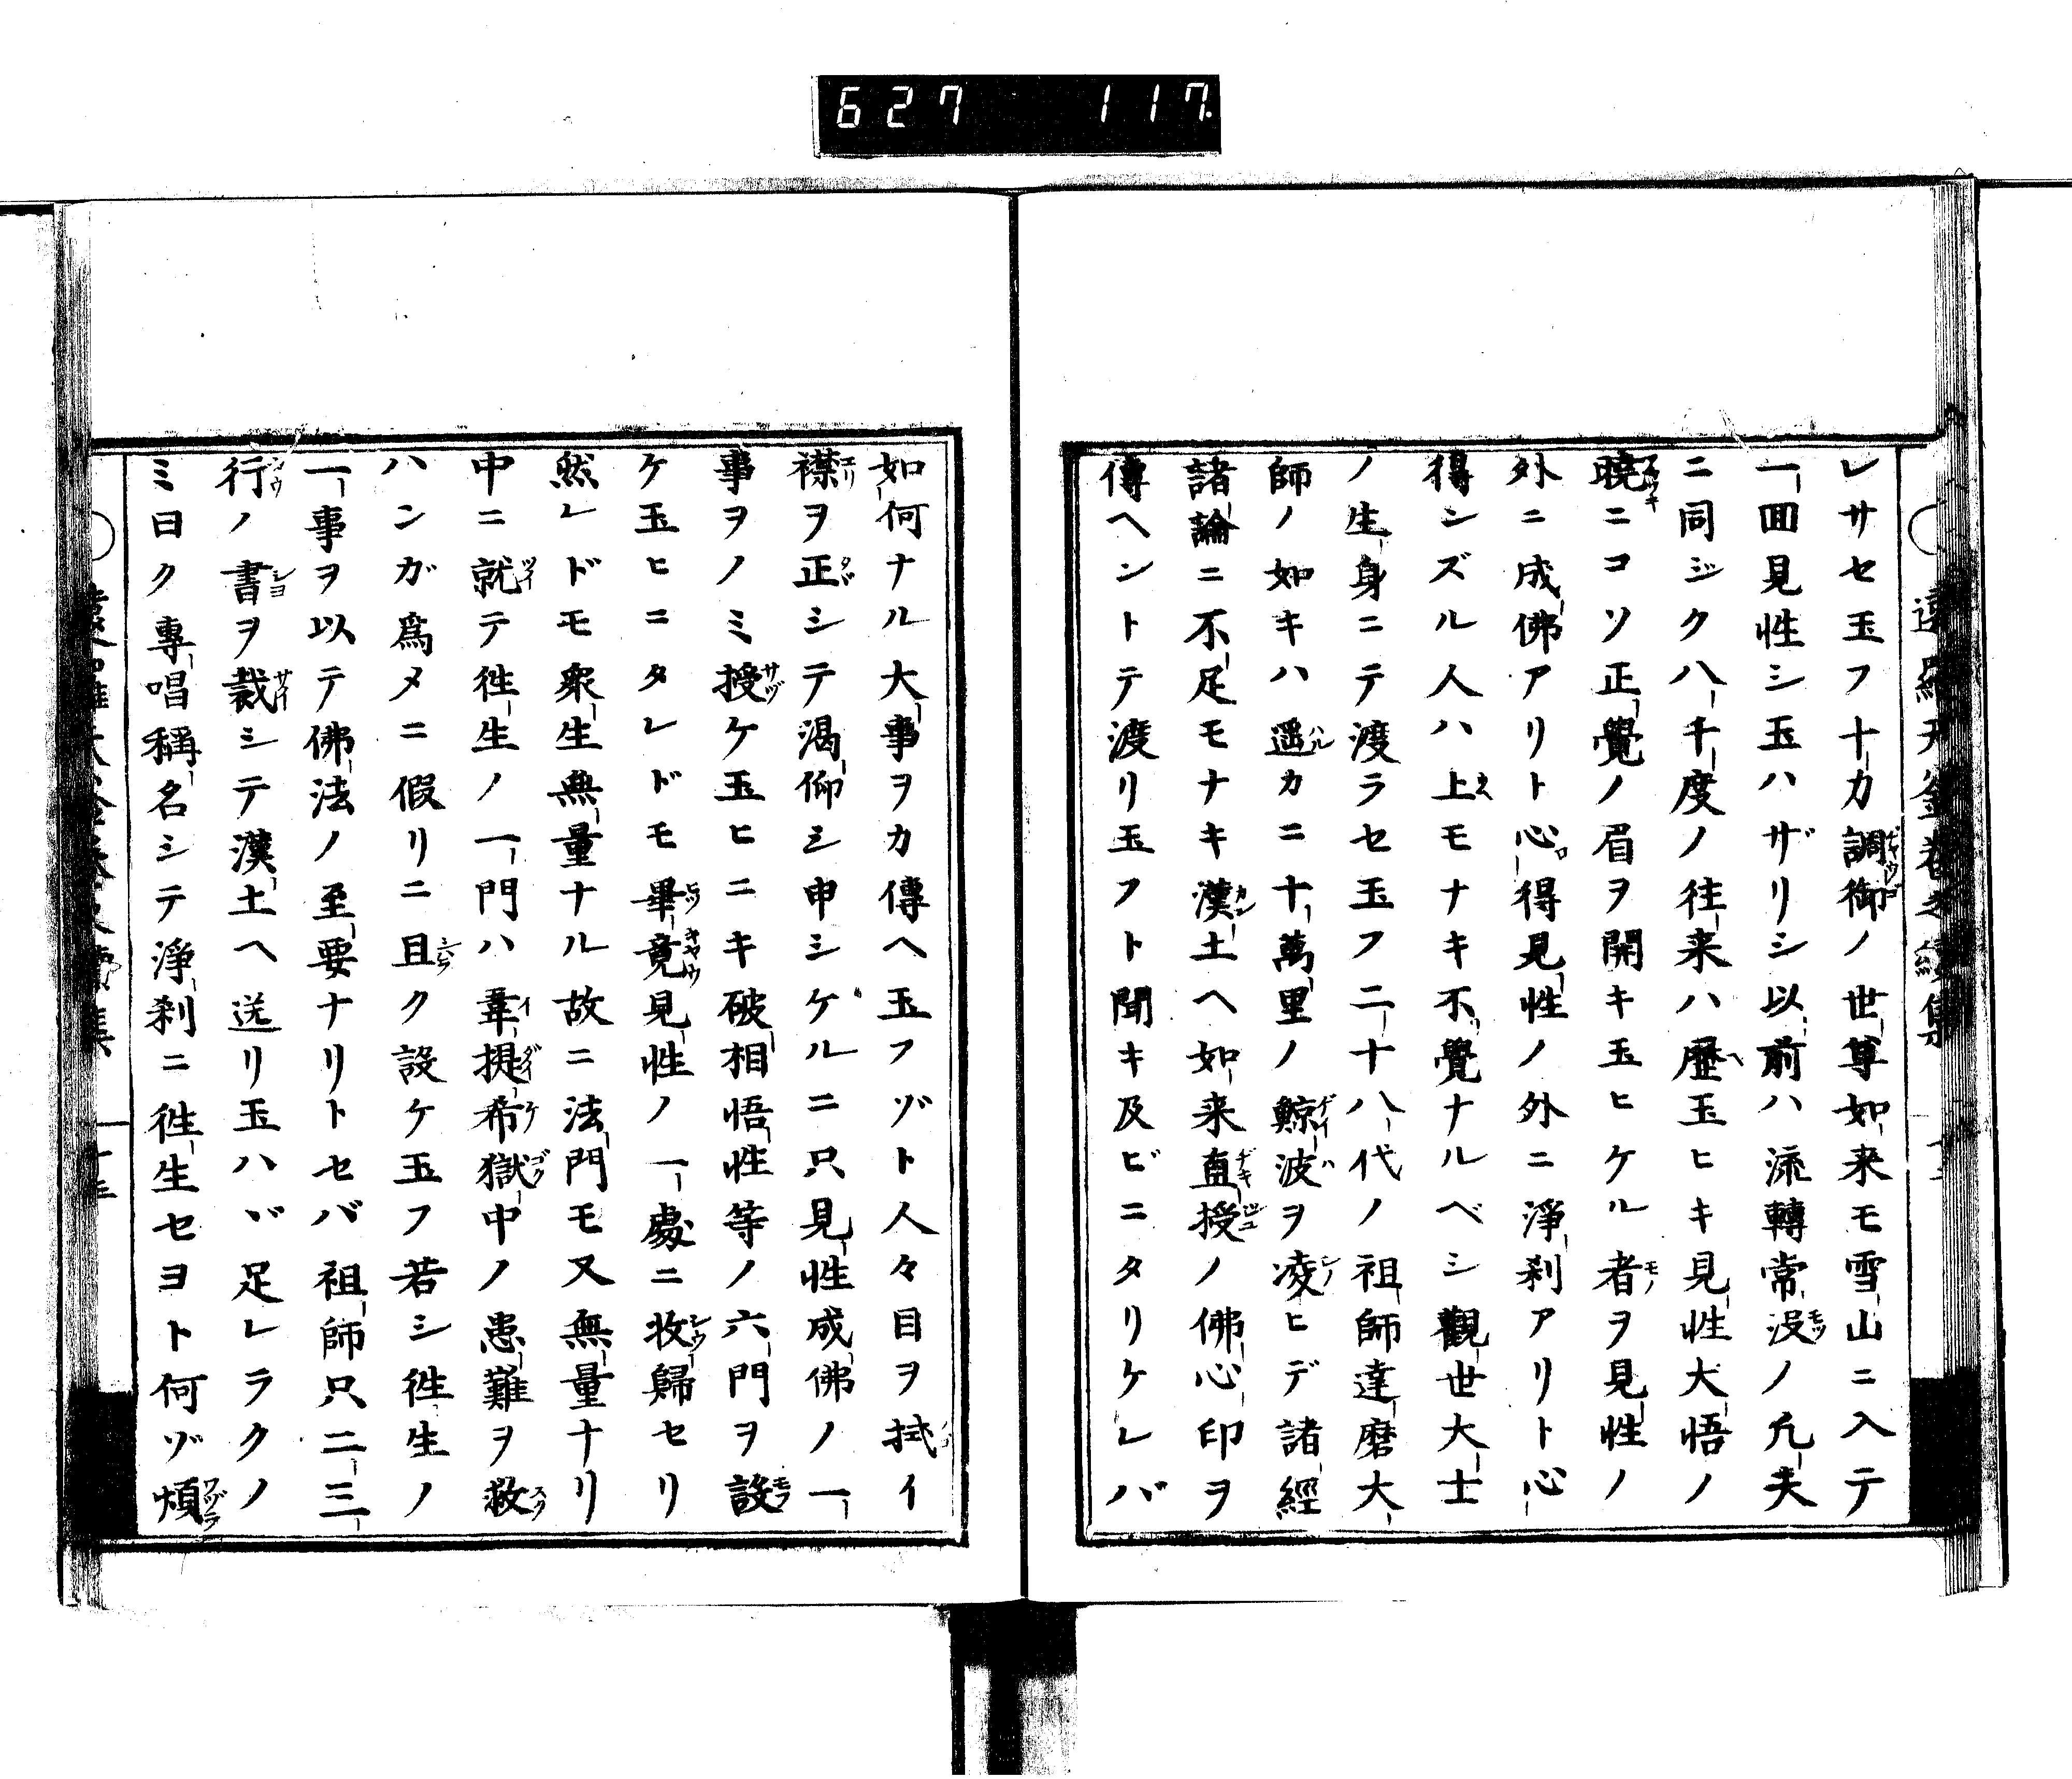 627 117
レサセ玉フ十カ調御ノ世尊如来モ雪山ニ入テ
一回見性シ玉ハザリシ以前ハ流轉常没ノ凡夫
ニ同ジク八千度ノ往来ハ歴玉ヒキ見性大悟ノ
曉ニコソ正覺ノ眉ヲ開キ玉ヒケル者ヲ見性ノ
外ニ成佛アリト心得見性ノ外ニ淨刹アリト心
得ンズル人ハ上モナキ不覺ナルベシ觀世大士
ノ生身ニテ渡ラセ玉フ二十八代ノ祖師達磨大
師ノ如キハ遥カニ十萬里ノ鯨波ヲ凌ヒデ諸經
諸論ニ不足モナキ漢土ヘ如来直授ノ佛心印ヲ
傳ヘントテ渡リ玉フト聞キ及ビニタリケレバ
如何ナル大事ヲカ傳ヘ玉フゾト人々目ヲ拭イ
襟ヲ正シテ渇仰シ申シケルニ只見性成佛ノ一
事ヲノミ授ケ玉ヒニキ破相悟性等ノ六門ヲ設
ケ玉ヒニタレドモ畢竟見性ノ一處ニ收歸セリ
然レドモ衆生無量ナル故ニ法門モ又無量ナリ
中ニ就テ徃生ノ一門ハ韋提希獄中ノ患難ヲ救
ハンガ爲メニ假リニ且ク設ケ玉フ若シ徃生ノ
一事ヲ以テ佛法ノ至要ナリトセバ祖師只二三
行ノ書ヲ裁シテ漢土ヘ送リ玉ハヾ足レラクノ
ミ曰ク專唱稱名シテ淨刹ニ徃生セヨト何ゾ煩